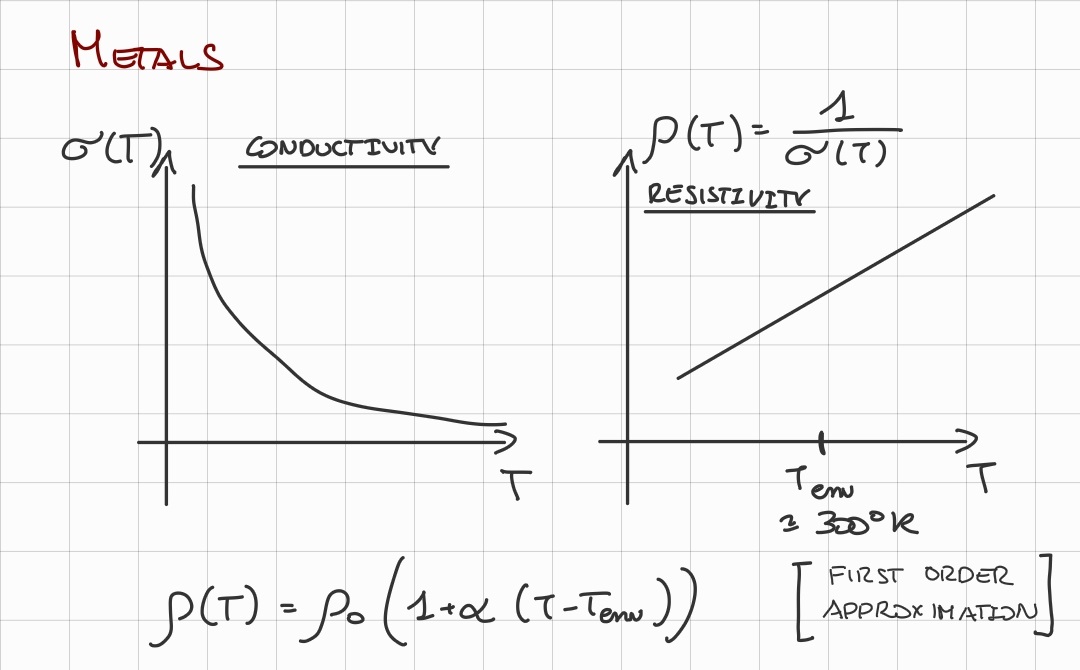 METALS
σ(T)
CONDUCTIVITY
T
ρ(T) = 1/σ(T)
RESISTIVITY
T
Tenv
≃ 300°K
ρ(T) = ρ₀ (1+α (T-Tenv))
[FIRST ORDER
APPROXIMATION]